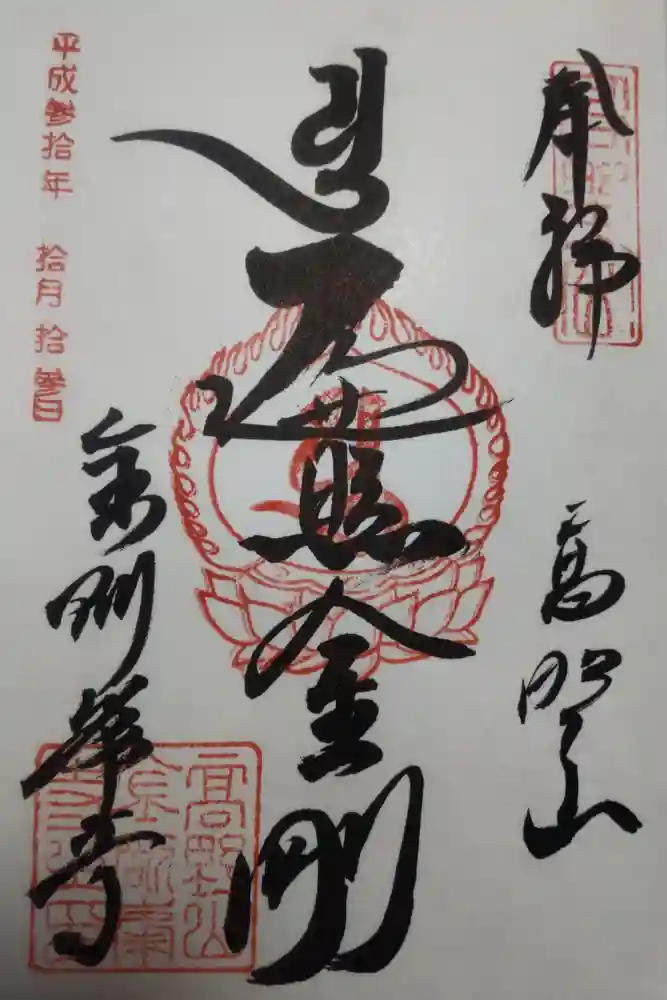 奉拝
高野山
遍照金剛
金剛峯寺
平成参拾年 拾月拾参日
高野山
金剛峯
寺之印